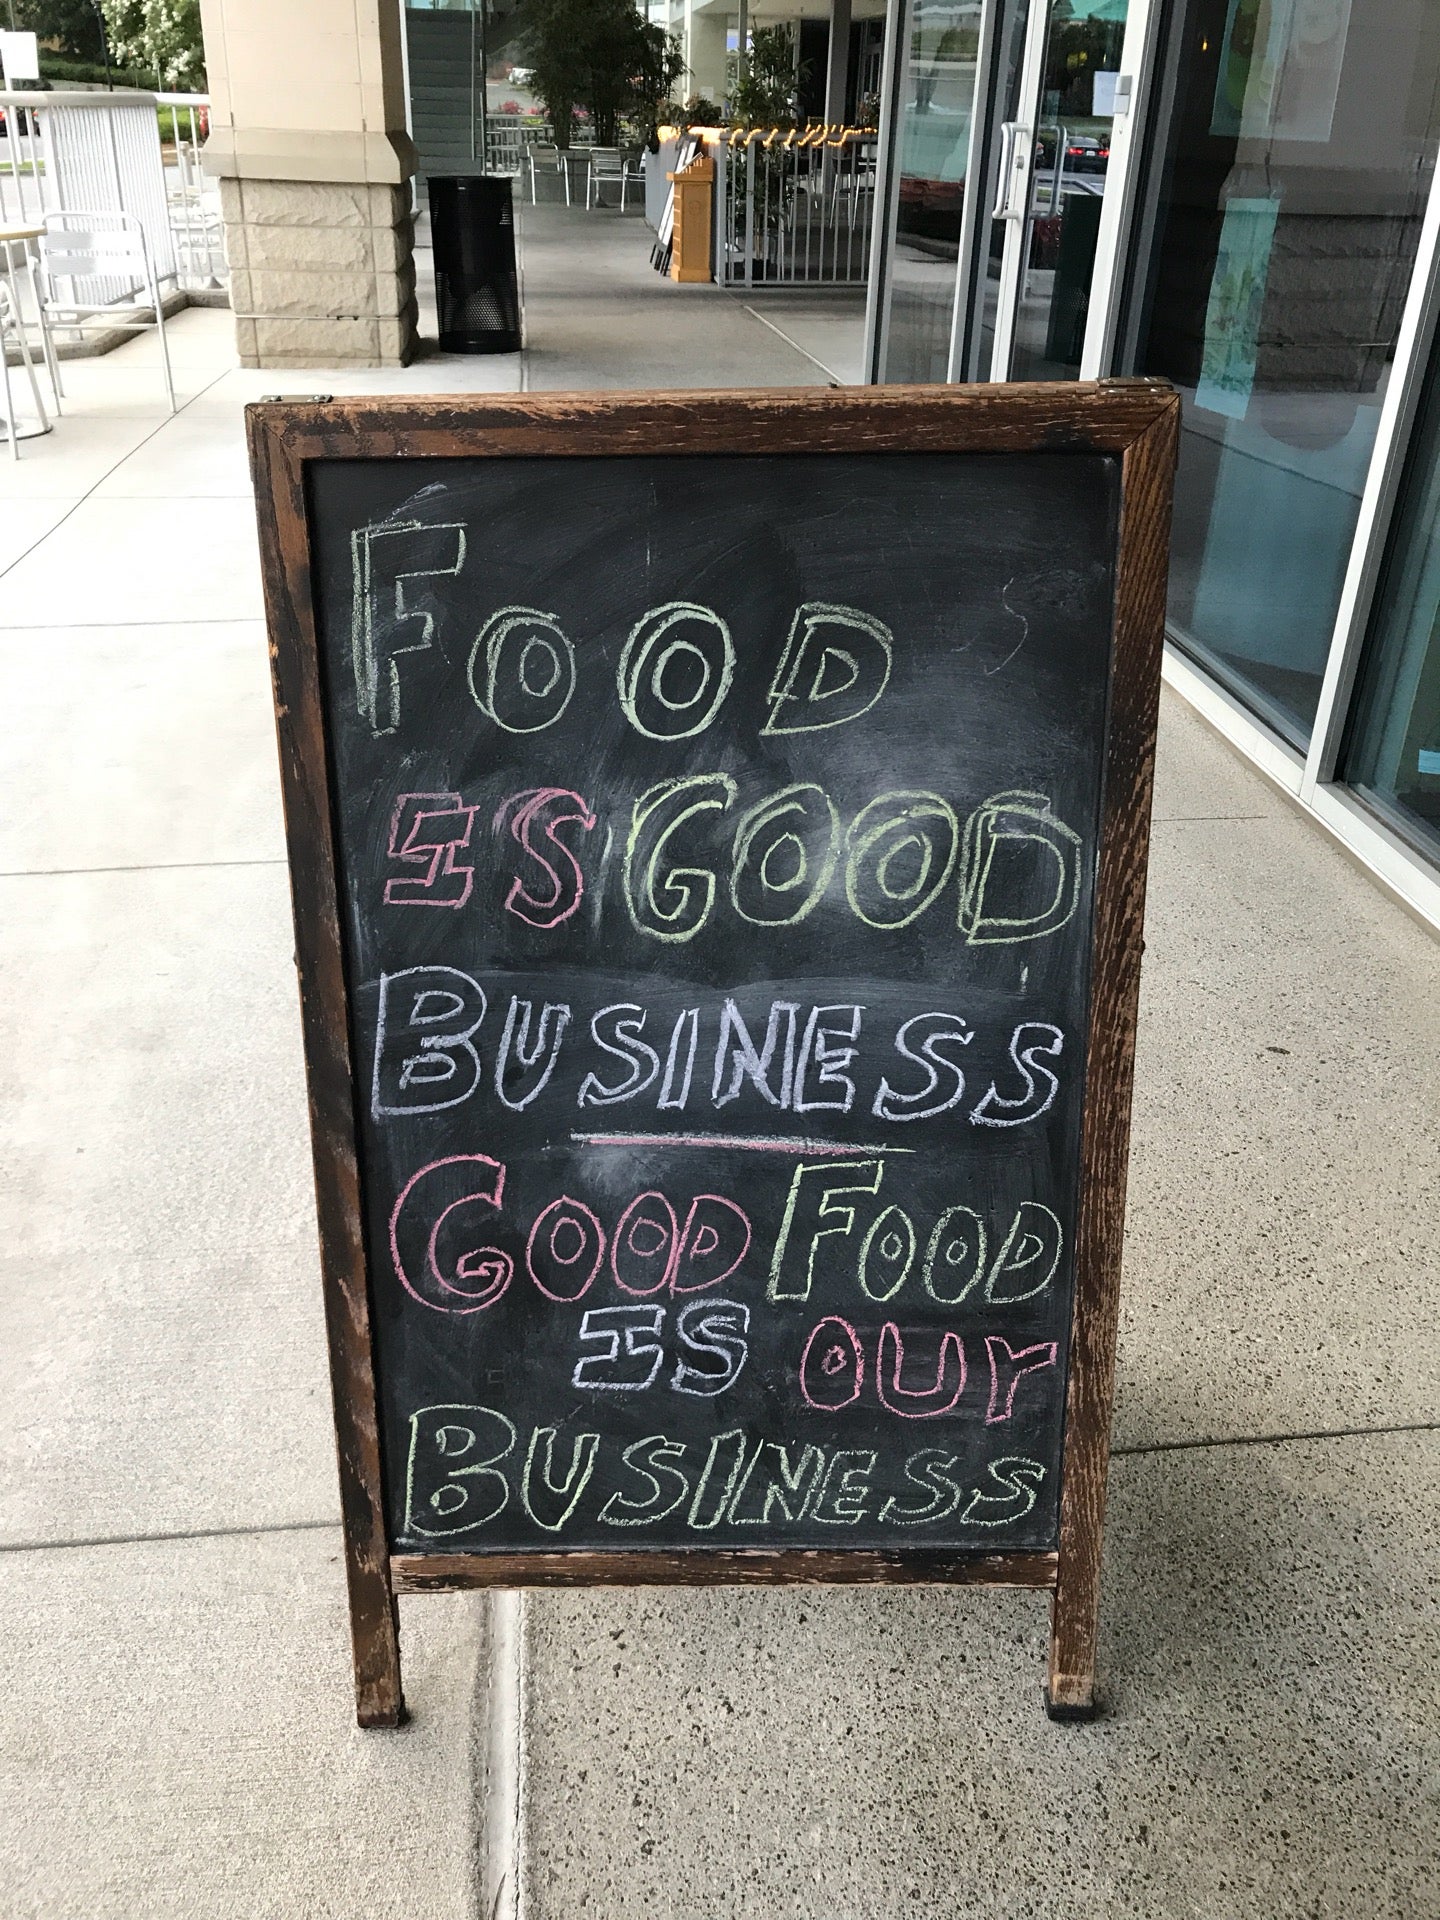 FOOD
IS GOOD
BUSINESS
GOOD FOOD
IS OUr
BUSINESS